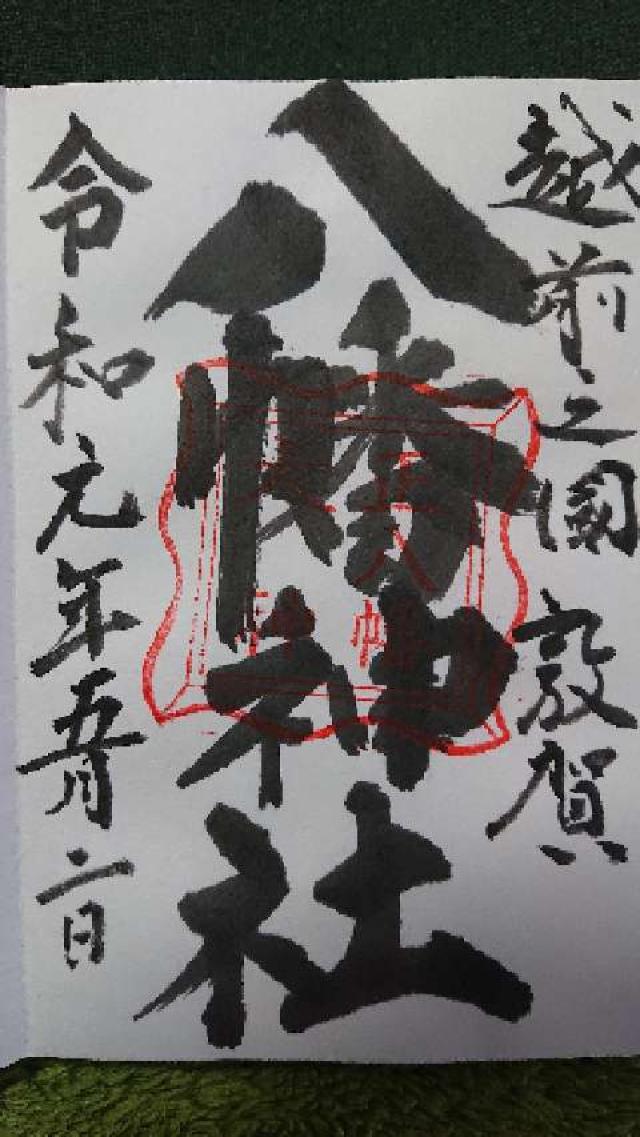 越前之國 敦賀
八幡神社
令和元年五月二日